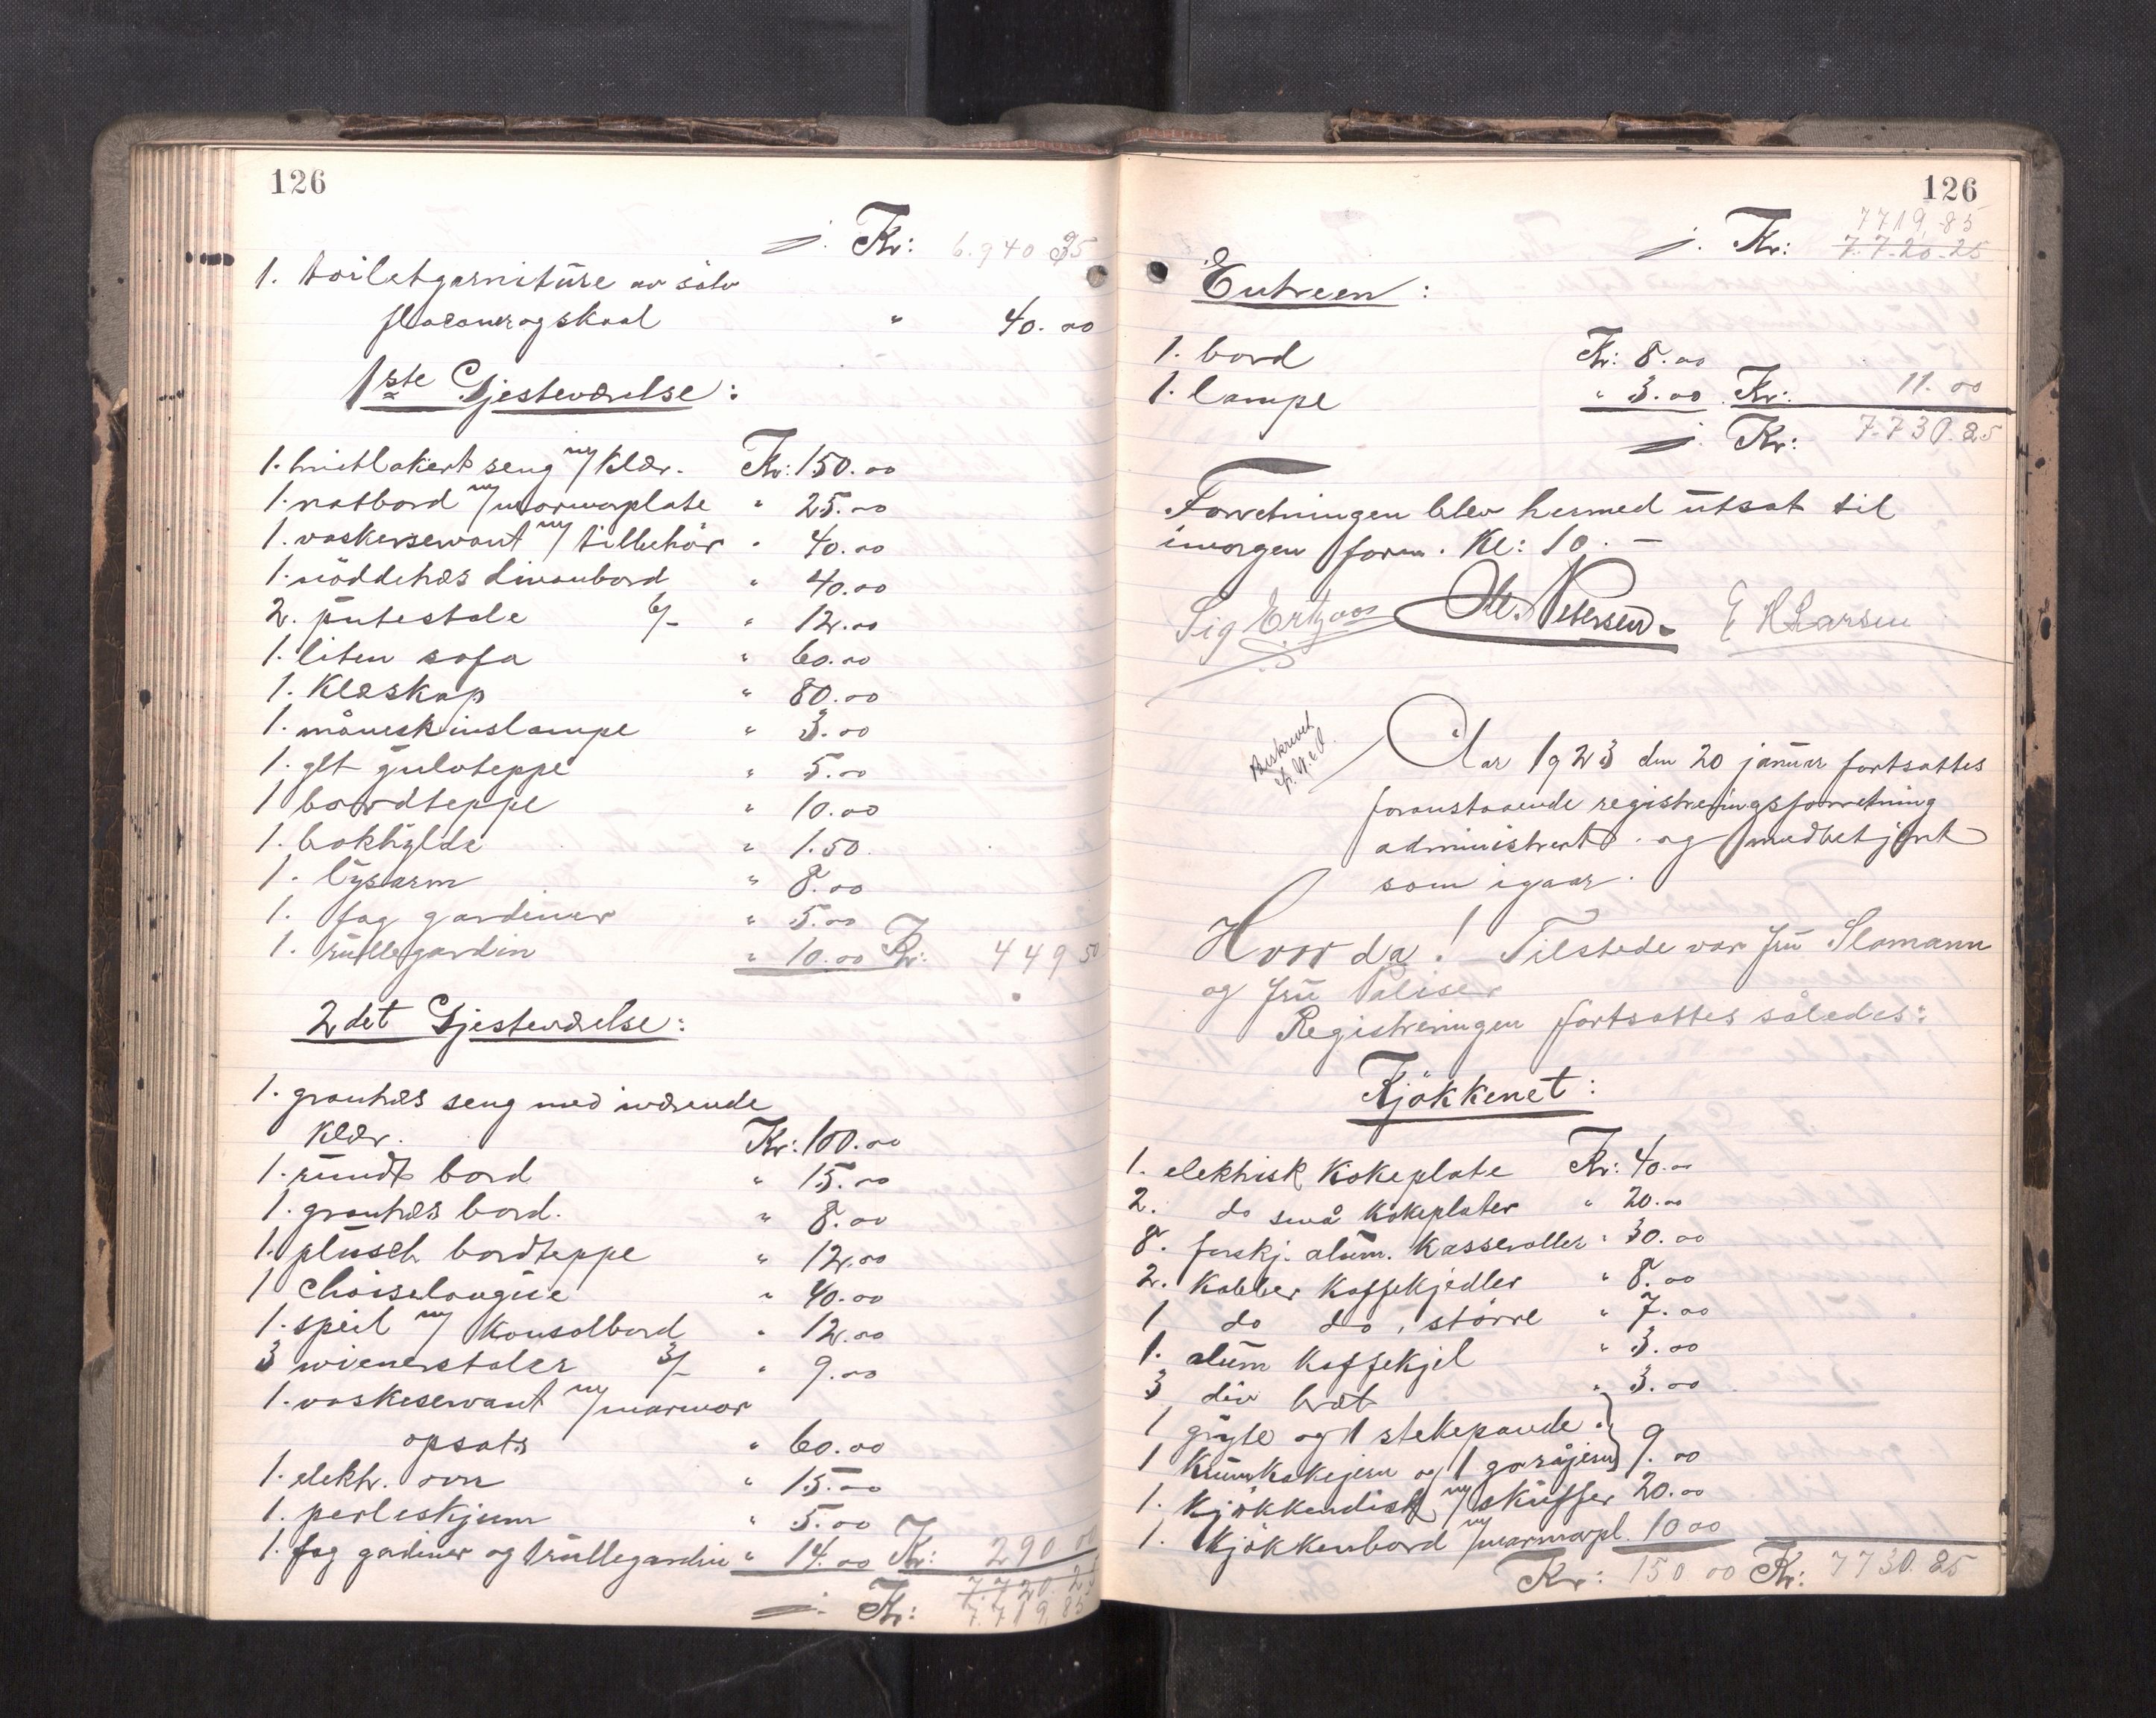 126
j. Kr: 6.940 35
1. toiletgarnitüre av sölv
flaconer og skaal " 40.00
1ste Gjesteværelse:
1. hvitlakert seng m/ klær. Kr: 150.00
1. natbord m/ marmorplate " 25.00
1. vaskeservant m/ tilbehör " 40.00
1. nöddetræs divanbord " 40.00
2. putestole 6/- " 12.00
1. liten sofa " 60.00
1. klæskap " 80.00
1. måneskinslampe " 3.00
1. glt gulvteppe " 5.00
1 bordteppe " 10.00
1. bokhylde " 1.50
1. lysarm " 8.00
1. fag gardiner " 5.00
1. rullegardin " 10.00 Kr: 449 50
2det Gjesteværelse:
1. grantræs seng med iværende
klær. Kr: 100.00
1. rundt bord " 15.00
1. grantræs bord. " 8.00
1. plüsch bordteppe " 12.00
1 Chaiselongue " 40.00
1. speil m/ konsolbord " 12.00
3 wienerstoler 3/- " 9.00
1. vaskeservant m/ marmor
opsats " 60.00
1. elektr. ovn " 15.00
1. perleskjerm " 5.00
1. fag gardiner og 1 rullegardin " 14.00 Kr: 290 00
7.720.25
j. Kr: 7.719.85
126
7719,85
j. Kr: 7.720.25
Entreen:
1. bord Kr: 8.00
1. lampe " 3.00 Kr: 11.00
j. Kr: 7.730.85
Forretningen blev hermed utsat til
imorgen form. Kl: 10. -
Sig Ertzaas Ole Petersen E H Larsen
Beskrevet
Aar 1923 den 20 januar fortsattes
foranstaaende registreringsforretning
administrert og medbetjent
som igaar.
Hvor da! Tilstede var fru Slomann
og fru Paliser
Registreringen fortsattes således:
Kjökkenet:
1. elektrisk kokeplate Kr: 40.00
2. do små kokeplater " 20.00
8. forskj. alum. kasseroller " 30.00
2. kobber kaffekjedler " 8.00
1 do do, större " 7.00
1. alum kaffekjel " 3.00
3 div bræt " 3.00
1 gryte og 1 stekepande "
1 krumkakejern og 1 goråjern } 9.00
1. kjökkendisk m/ skuffer 20.00
1. kjökkenbord m/ marmorpl. 10 00
Kr: 150 00 Kr: 7730.85